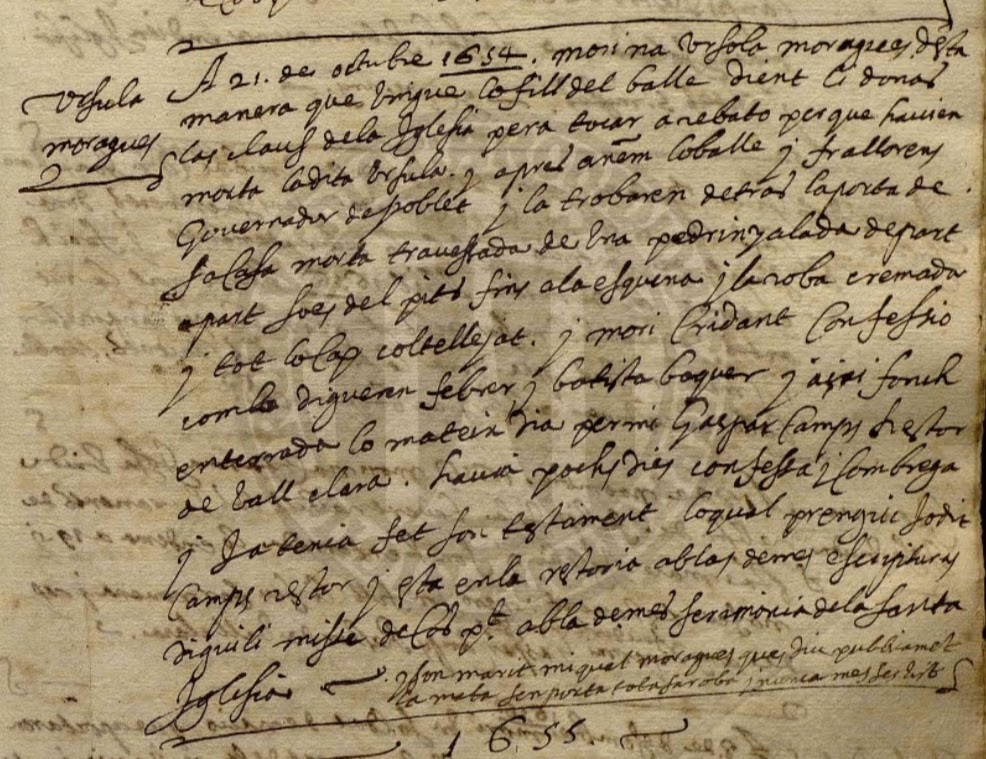 Ursula
moragues
A 21. de octubre 1654. mori na Ursola moragues desta
manera que vingue lo fill del balle dient li donas
las claus dela Iglesia pera tocar a rebato perque havien
morta la dita Ursula. j apres anem lo balle j fra llorens
Governador de Poblet j la trobaren detras la porta de
sa Casa morta travessada de una pedrinyalada de part
a part so es del pits fins a la esquena j la roba cremada
j tot lo Cap coltellejat. j mori Cridant Confessio
com ho digueren febrer j batista boquer j aixi fonch
enterrada lo mateix dia per mi Gaspar Camps Rector
de Vall clara. havia pochs dies confessa j Combrega
j Ja tenia fet son testament loqual prengui Jo dit
Camps rector j esta en la rectoria ab las demes escripturas
digui li missa de Cos pt. ab la demes serimonia dela santa
Iglesia
j son marit miquel moragues ques diu publicamet
la mata sen porta tota sa roba j nunca mes ser vist
1655.